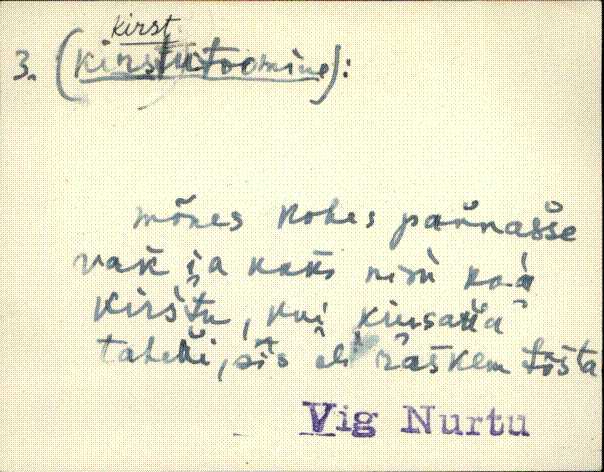 kirst
3. (kirstutoomine):
mõnes kohes pañnašše
vak ja kaks nisu
kirštu, kui kiusata
taheti, sis oli raskem tõsta
Vig Nurtu